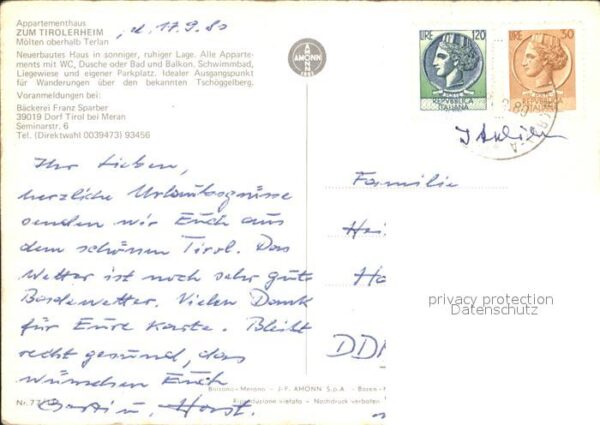 Appartementhaus
ZUM TIROLERHEIM
Mölten oberhalb Terlan
d. 17.9.80
Neuerbautes Haus in sonniger, ruhiger Lage. Alle Apparte-
ments mit WC, Dusche oder Bad und Balkon, Schwimmbad,
Liegewiese und eigener Parkplatz. Idealer Ausgangspunkt
für Wanderungen über den bekannten Tschöggelberg.
Voranmeldungen bei:
Bäckerei Franz Sparber
39019 Dorf Tirol bei Meran
Seminarstr. 6
Tel. (Direktwahl 0039473) 93456
AMONN
LIRE 120
REPVBBLICA
ITALIANA
LIRE 50
REPVBBLICA
ITALIANA
Italien
Ihr Lieben,
herzliche Urlaubsgrüsse
senden wir Euch aus
dem schönen Tirol. Das
Wetter ist noch sehr gutes
Badewetter. Vielen Dank
für Eure Karte. Bleibt
recht gesund, das
wünschen Euch
u. Horst.
Familie
Hei
Ha
DDR
privacy protection
Datenschutz
Bolzano-Merano - J.F. AMONN S.p.A. - Bozen-
Riproduzione vietata - Nachdruck verboten